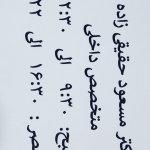 کتر مسعود حقیقی زاده
متخصص داخلی
بح: ۹:۳۰ الی ۲:۳۰
صر : ۱۶:۳۰ الی ۲۲